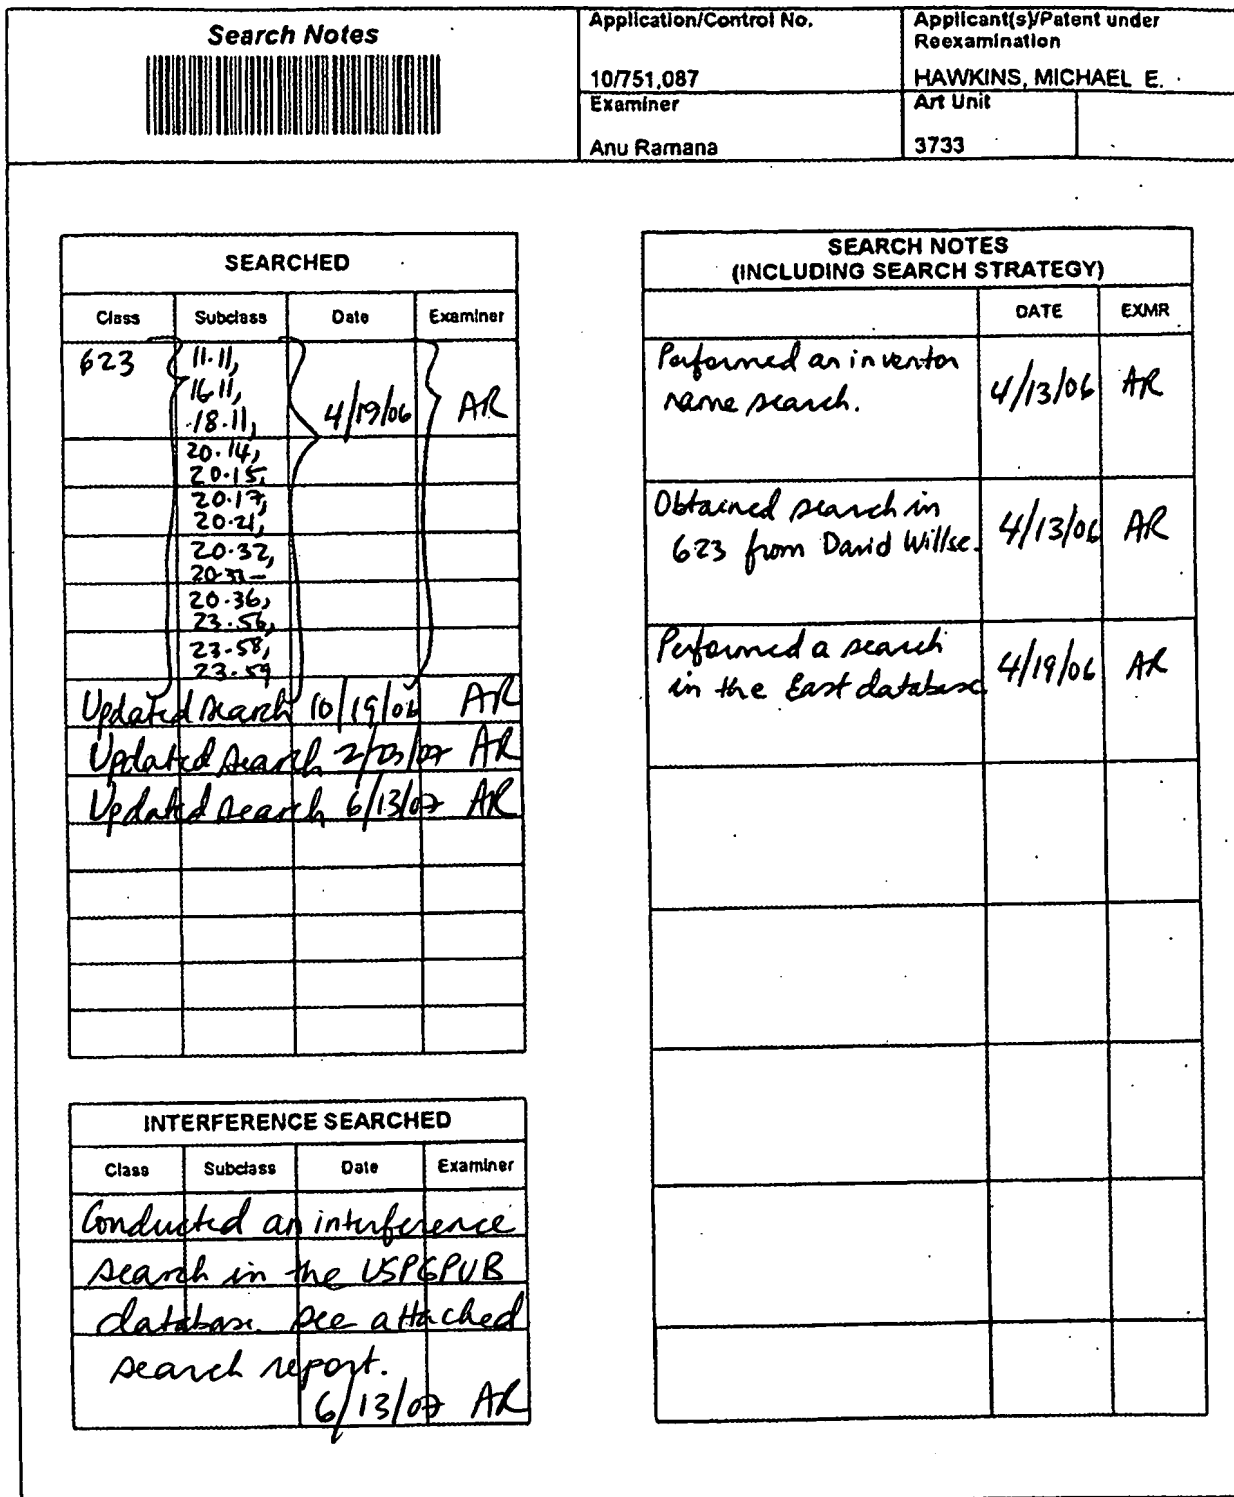 Search Notes
Application/Control No.
10/751,087
Applicant(s)/Patent under
Reexamination
HAWKINS, MICHAEL E.
Examiner
Anu Ramana
Art Unit
3733
SEARCHED
Class Subclass Date Examiner
623 11.11, 4/19/06 AR
16.11,
18.11,
20.14,
20.15,
20.17,
20.21,
20.32,
20.33-
20.36,
23.56,
23.58,
23.59
Updated search 10/19/06 AR
Updated search 2/23/07 AR
Updated search 6/13/07 AR
INTERFERENCE SEARCHED
Class Subclass Date Examiner
Conducted an interference
search in the USPGPUB
database. See attached
search report.
6/13/07 AR
SEARCH NOTES
(INCLUDING SEARCH STRATEGY)
DATE EXMR
Performed an inventor
name search. 4/13/06 AR
Obtained search in
623 from David Willse. 4/13/06 AR
Performed a search
in the East database 4/19/06 AR